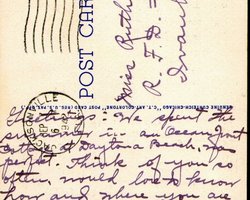 POST CAR
GENUINE CURTEICH-CHICAGO "C.T. ART-COLORTONE" POST CARD (REG. U.S. PAT. OF
Miss Ruth
R. F. D.
SONVILLE
SEP
Greetings: We spent the
summer in an Oceanfront
at Daytona Beach,
perfect. Think of you so
often, would love to know
how and where you are